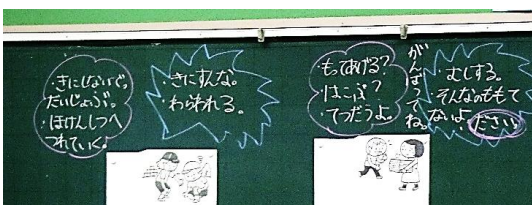 ・きにしないで。
だいじょぶ。
・ほけんしつへ
つれていく。
・きにすんな。
・わらわれる。
・もってあげる?
・はこぶ?
・てつだうよ。
がんばってね。
・むしする。
・そんなのももて
ないよ。ださい。